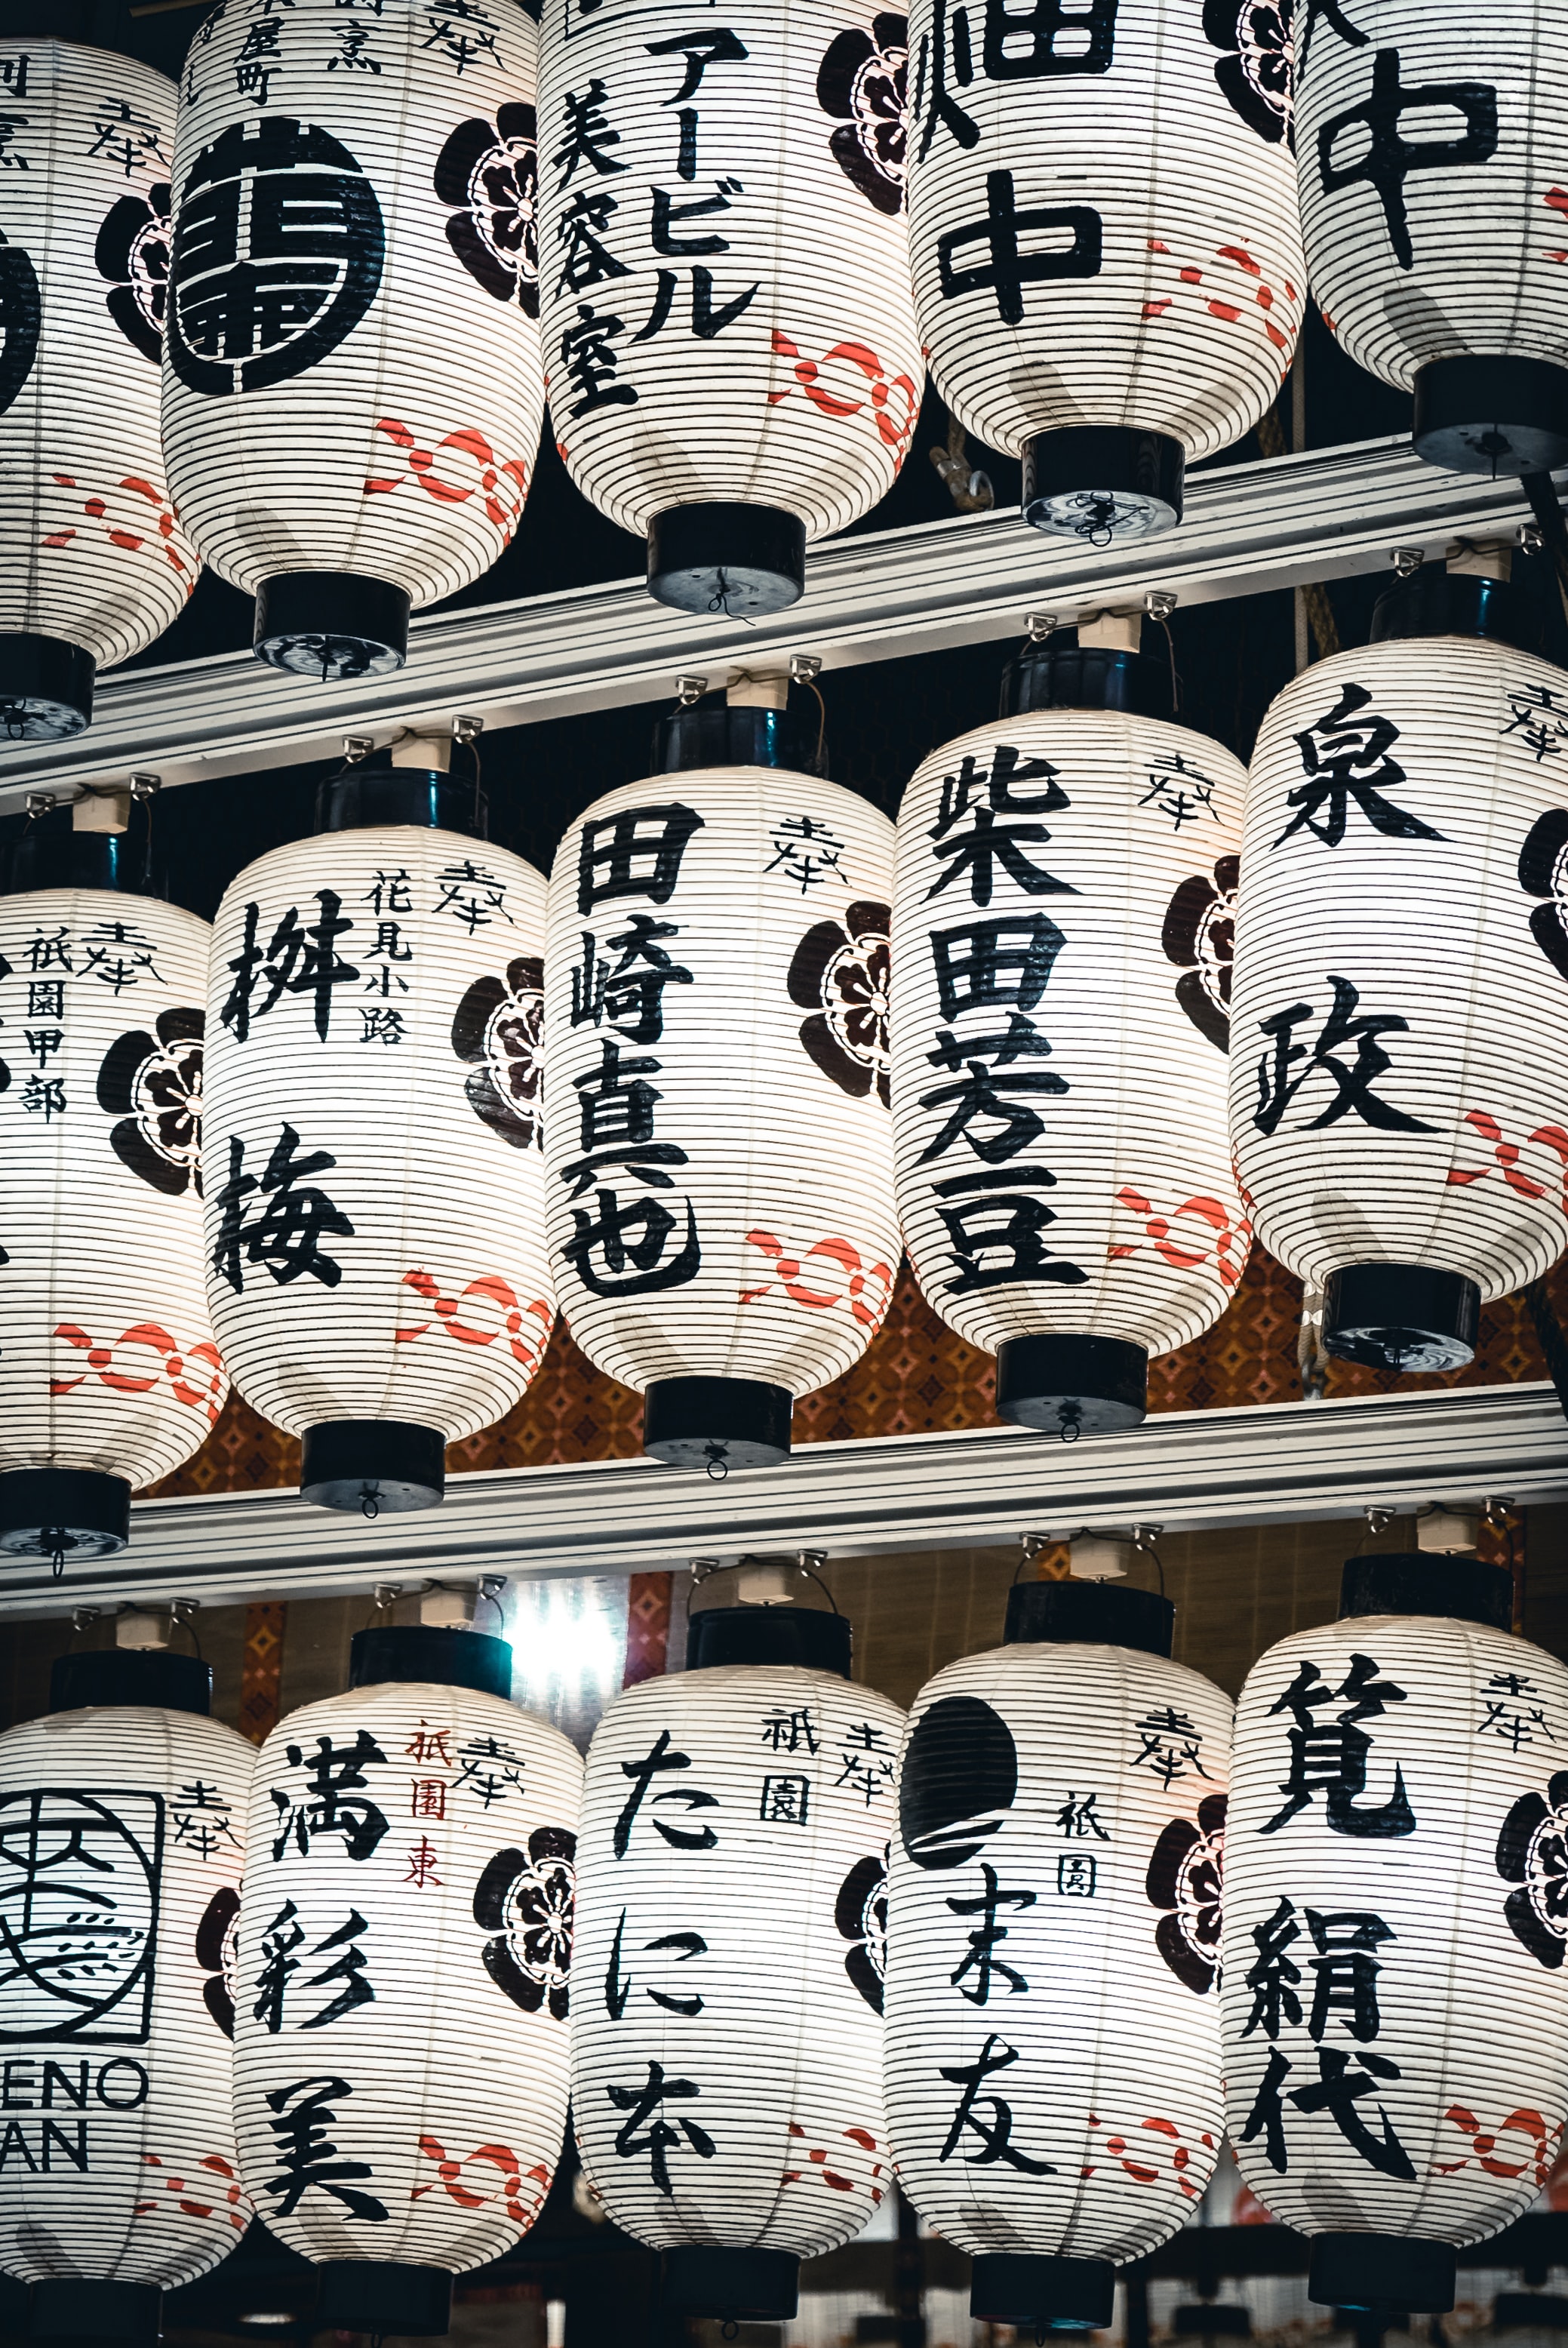 奉
奉
屋町
アービル
美容室
畑中
中
奉
祇園甲部
奉
花見小路
桝梅
奉
田崎真也
奉
柴田芳豆
奉
泉政
奉
ENO
AN
奉
祇園東
満彩美
奉
祇園
たに本
奉
祇園
末友
奉
筧絹代